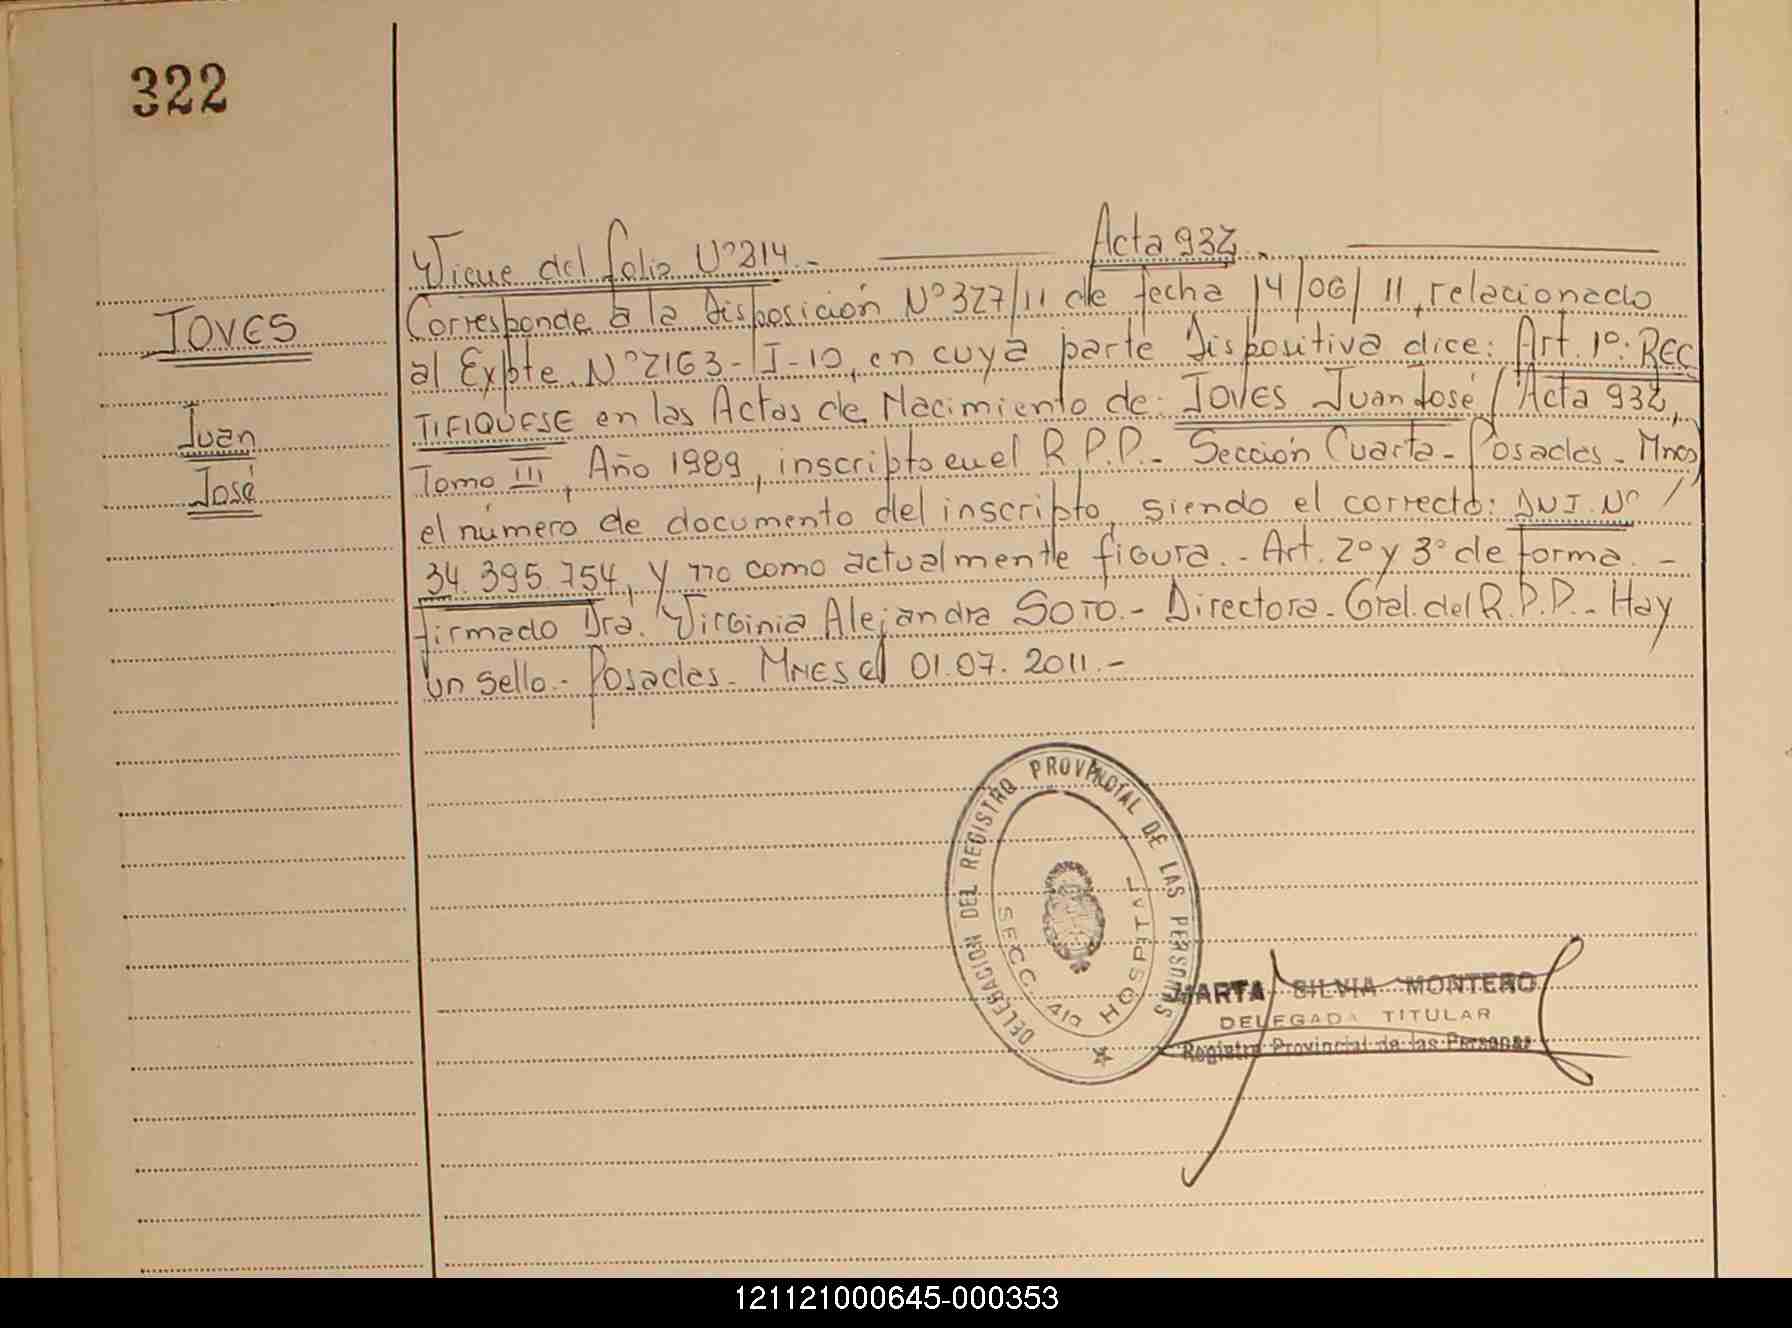 322
Viene del folio Nº 314.- Acta 932.-
JOVES
Juan
José
Corresponde a la Disposición Nº 327/11 de fecha 14/06/11, relacionado
al Expte. Nº 2163-I-10, en cuya parte Dispositiva dice: Art. 1º: REC
TIFIQUESE en las Actas de Nacimiento de: JOVES Juan José / Acta 932,
Tomo III, Año 1989, inscripto en el R.P.P.- Sección Cuarta - Posadas - Mnes)
el número de documento del inscripto, siendo el correcto: DNI. Nº /
34.395.754, y no como actualmente figura.- Art. 2º y 3º de forma.-
firmado Dra. Virginia Alejandra SOTO.- Directora - Gral. del R.P.P.- Hay
un sello.- Posadas - MNES el 01.07.2011.-
DELEGACION DEL REGISTRO PROVINCIAL DE LAS PERSONAS
SECC. 4ta HOSPITAL
MARTA SILVIA MONTERO
DELEGADA TITULAR
Registro Provincial de las Personas
121121000645-000353